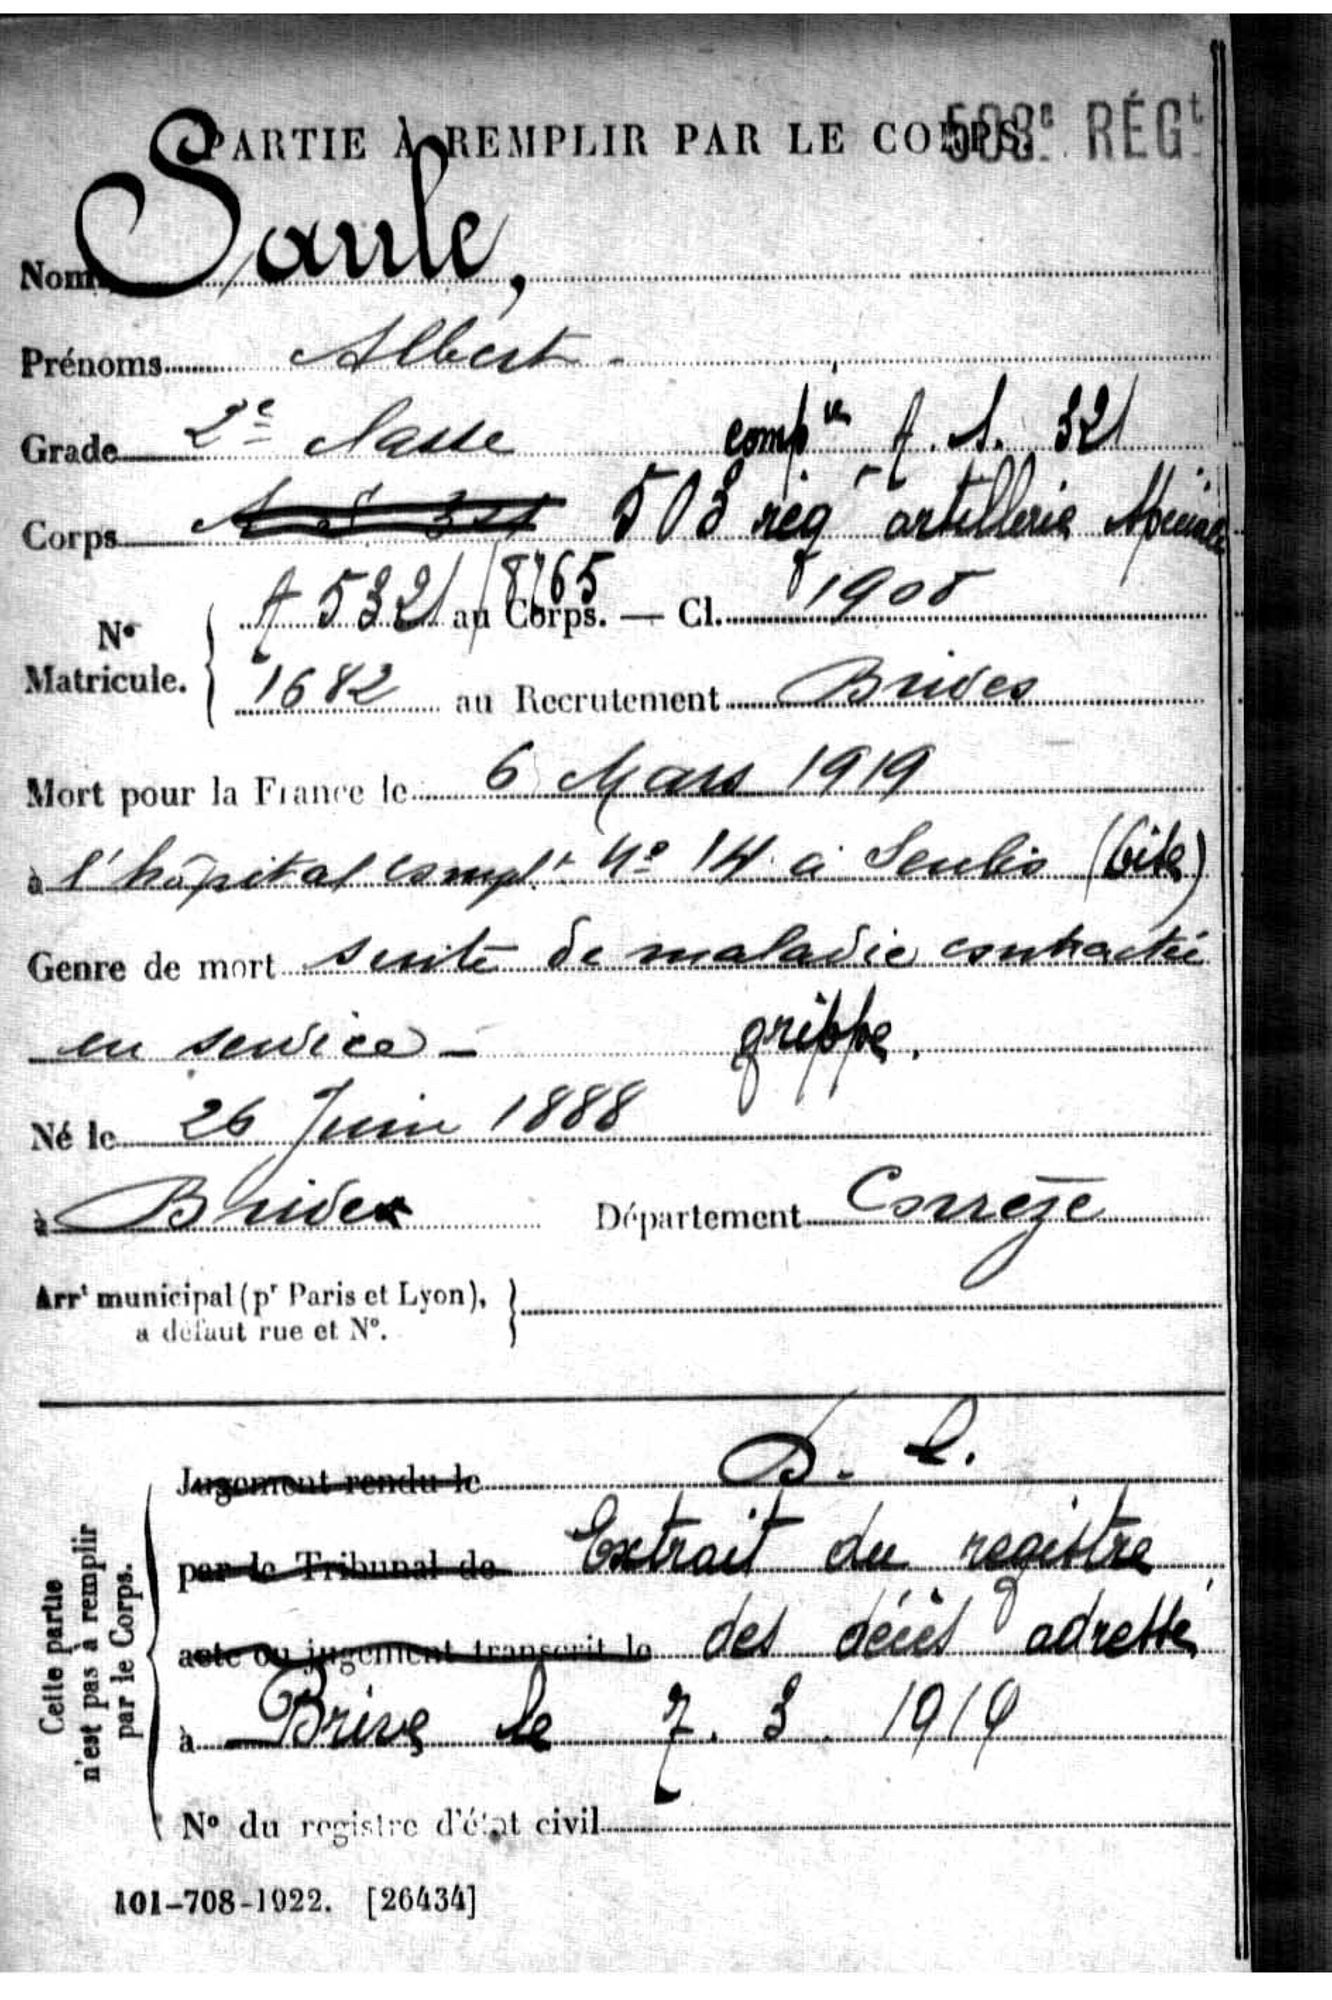 PARTIE À REMPLIR PAR LE CORPS. 503e RÉGt
Nom Saule,
Prénoms Albert
Grade 2e classe compie A. S. 321
Corps A S 321 503 rég artillerie spéciale
No Matricule. A 5321 / 8765 au Corps. — Cl. 1908
1682 au Recrutement Brives
Mort pour la France le 6 Mars 1919
à l'hôpital compl.t No 14 à Senlis (Oise)
Genre de mort suite de maladie contractée
en service – grippe.
Né le 26 Juin 1888
à Brives Département Corrèze
Arrt municipal (pr Paris et Lyon),
a défaut rue et No.
Cette partie
n'est pas à remplir
par le Corps.
Jugement rendu le D. C.
par le Tribunal de Extrait du registre
acte ou jugement transcrit le des décès adressé
à Brive le 7. 3. 1919
No du registre d'état civil
101-708-1922. [26434]